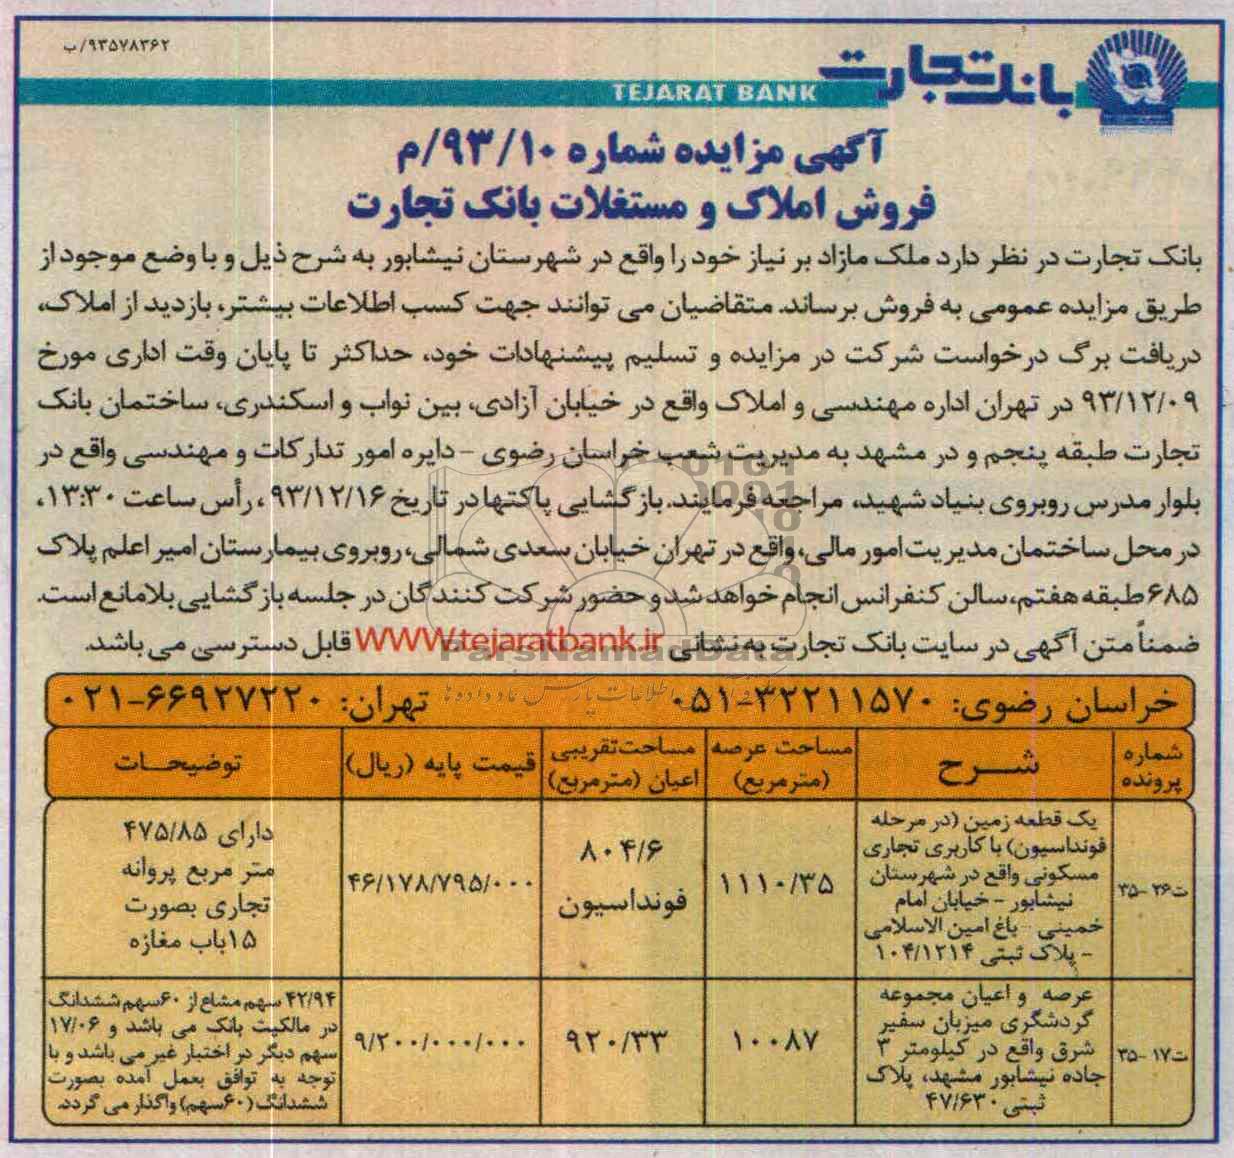 ۹۳۵۷۸۳۶۲/ب
بانک تجارت
TEJARAT BANK
آگهی مزایده شماره ۹۳/۱۰/م
فروش املاک و مستغلات بانک تجارت
بانک تجارت در نظر دارد ملک مازاد بر نیاز خود را واقع در شهرستان نیشابور به شرح ذیل و با وضع موجود از
طریق مزایده عمومی به فروش برساند. متقاضیان می توانند جهت کسب اطلاعات بیشتر، بازدید از املاک،
دریافت برگ درخواست شرکت در مزایده و تسلیم پیشنهادات خود، حداکثر تا پایان وقت اداری مورخ
۹۳/۱۲/۰۹ در تهران اداره مهندسی و املاک واقع در خیابان آزادی، بین نواب و اسکندری، ساختمان بانک
تجارت طبقه پنجم و در مشهد به مدیریت شعب خراسان رضوی - دایره امور تدارکات و مهندسی واقع در
بلوار مدرس روبروی بنیاد شهید، مراجعه فرمایند. بازگشایی پاکتها در تاریخ ۹۳/۱۲/۱۶ ، رأس ساعت ۱۳:۳۰،
در محل ساختمان مدیریت امور مالی، واقع در تهران خیابان سعدی شمالی، روبروی بیمارستان امیر اعلم پلاک
۶۸۵ طبقه هفتم، سالن کنفرانس انجام خواهد شد و حضور شرکت کنندگان در جلسه بازگشایی بلامانع است.
ضمناً متن آگهی در سایت بانک تجارت به نشانی WWW.tejaratbank.ir قابل دسترسی می باشد.
ParsNamadData
خراسان رضوی: ۳۲۲۱۱۵۷۰-۰۵۱ تهران: ۶۶۹۲۷۲۲۰-۰۲۱
شماره پرونده
شرح
مساحت عرصه (مترمربع)
مساحت تقریبی اعیان (مترمربع)
قیمت پایه (ریال)
توضیحات
ت۲۶-۳۵
یک قطعه زمین (در مرحله
فونداسیون) با کاربری تجاری
مسکونی واقع در شهرستان
نیشابور - خیابان امام
خمینی - باغ امین الاسلامی
- پلاک ثبتی ۱۰۴/۱۲۱۴
۱۱۱۰/۳۵
۸۰۴/۶
فونداسیون
۴۶/۱۷۸/۷۹۵/۰۰۰
دارای ۴۷۵/۸۵
متر مربع پروانه
تجاری بصورت
۱۵باب مغازه
ت۱۷-۳۵
عرصه و اعیان مجموعه
گردشگری میزبان سفیر
شرق واقع در کیلومتر ۳
جاده نیشابور مشهد، پلاک
ثبتی ۴۷/۶۳۰
۱۰۰۸۷
۹۲۰/۳۳
۹/۲۰۰/۰۰۰/۰۰۰
۴۲/۹۴ سهم مشاع از ۶۰سهم ششدانگ
در مالکیت بانک می باشد و ۱۷/۰۶
سهم دیگر در اختیار غیر می باشد و با
توجه به توافق بعمل آمده بصورت
ششدانگ (۶۰سهم) واگذار می گردد.